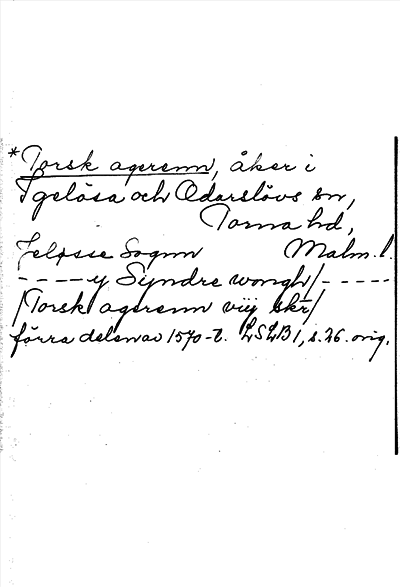 *Torsk agerenn, åker i
Igelösa och Odarslövs sn,
Torna hd,
Jeløsse Sognn Malm. l.
----y Syndre wongh/-----
/Torsk agerenn viij skr/
förra delen av 1570-t. LSLB 1, s. 26. orig.